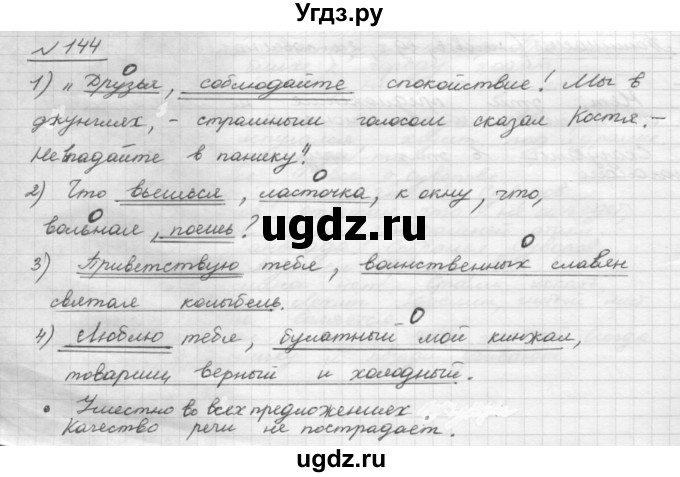 Угдз.ру
№ 144
1) „Друзья, соблюдайте спокойствие! Мы в
джунглях, - страшным голосом сказал Костя.-
Не впадайте в панику".
2) Что вьешься, ласточка, к окну, что,
вольная, поешь?
3) Приветствую тебя, воинственных славян
святая колыбель.
4) Люблю тебя, булатный мой кинжал,
товарищ верный и холодный.
• Уместно во всех предложениях.
Качество речи не пострадает.
ugdz.ru
ugdz.ru
ugdz.ru